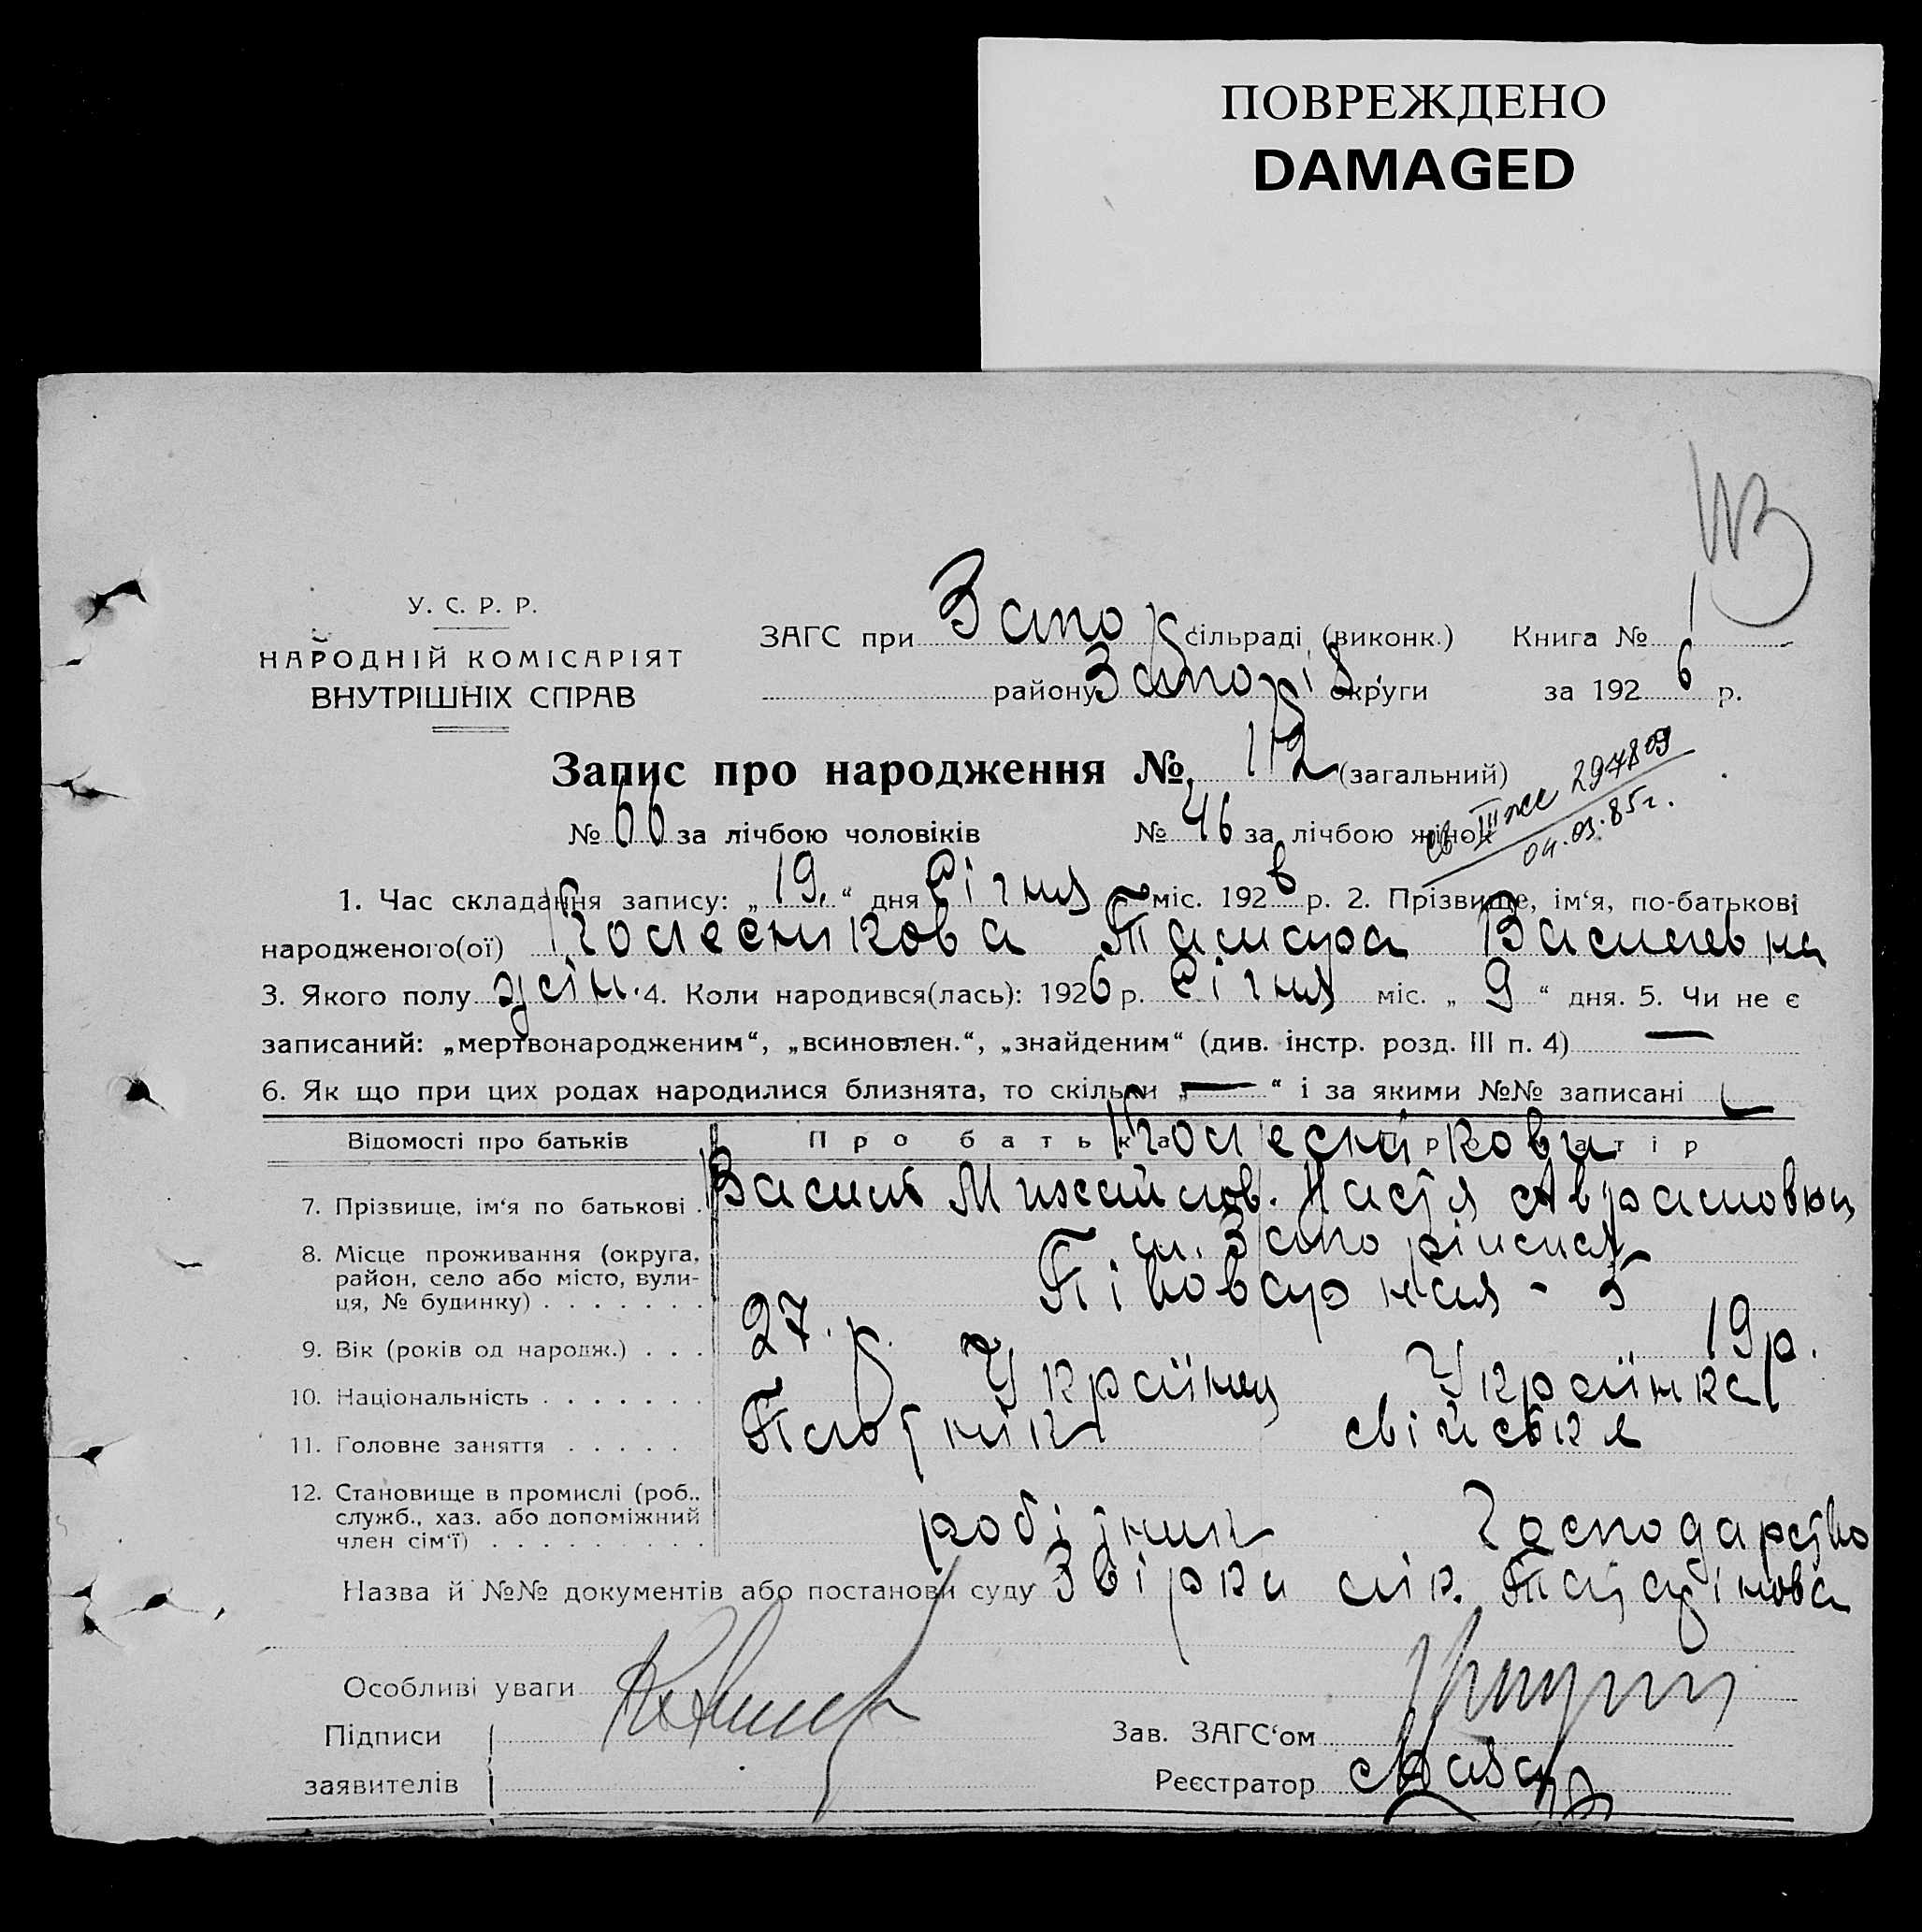 ПОВРЕЖДЕНО
DAMAGED
113
У. С. Р. Р.
НАРОДНІЙ КОМІСАРІЯТ
ВНУТРІШНІХ СПРАВ
ЗАГС при Запор сільраді (виконк.) Книга № 1
району Запоріз. округи за 1926 р.
Запис про народження № 112 (загальний)
№ 66 за лічбою чоловіків № 46 за лічбою жінок
св III же 297809
04.03.85г.
1. Час складання запису: „19.“ дня Січня міс. 1926 р. 2. Прізвище, ім‘я, по-батькові
народженого(ої) Колеснікова Тамара Васильевна
3. Якого полу жін. 4. Коли народився(лась): 1926 р. Січня міс. „9“ дня. 5. Чи не є
записаний: „мертвонародженим“, „всиновлен.“, „знайденим“ (див. інстр. розд. III п. 4) —
6. Як що при цих родах народилися близнята, то скільки „—“ і за якими №№ записані
Відомості про батьків Про батька Про матір
Колеснікови
7. Прізвище, ім‘я по батькові . Василь Михайлов. Настя Аврамовна
8. Місце проживання (округа,
район, село або місто, вули-
ця, № будинку) . . . . . . . м. Запоріжжя
Півоварная - 5
9. Вік (років од народж.) . . . 27. р. 19 р.
10. Національність . . . . . . . Українец Українка
11. Головне заняття . . . . . Плотнік свійське
12. Становище в промислі (роб.,
служб., хаз. або допоміжний
член сім‘ї) . . . . . . . . . робітник Господарство
Назва й №№ документів або постанови суду Звірка лік.
Особливі уваги
Підписи
заявителів
Зав. ЗАГС‘ом
Реєстратор